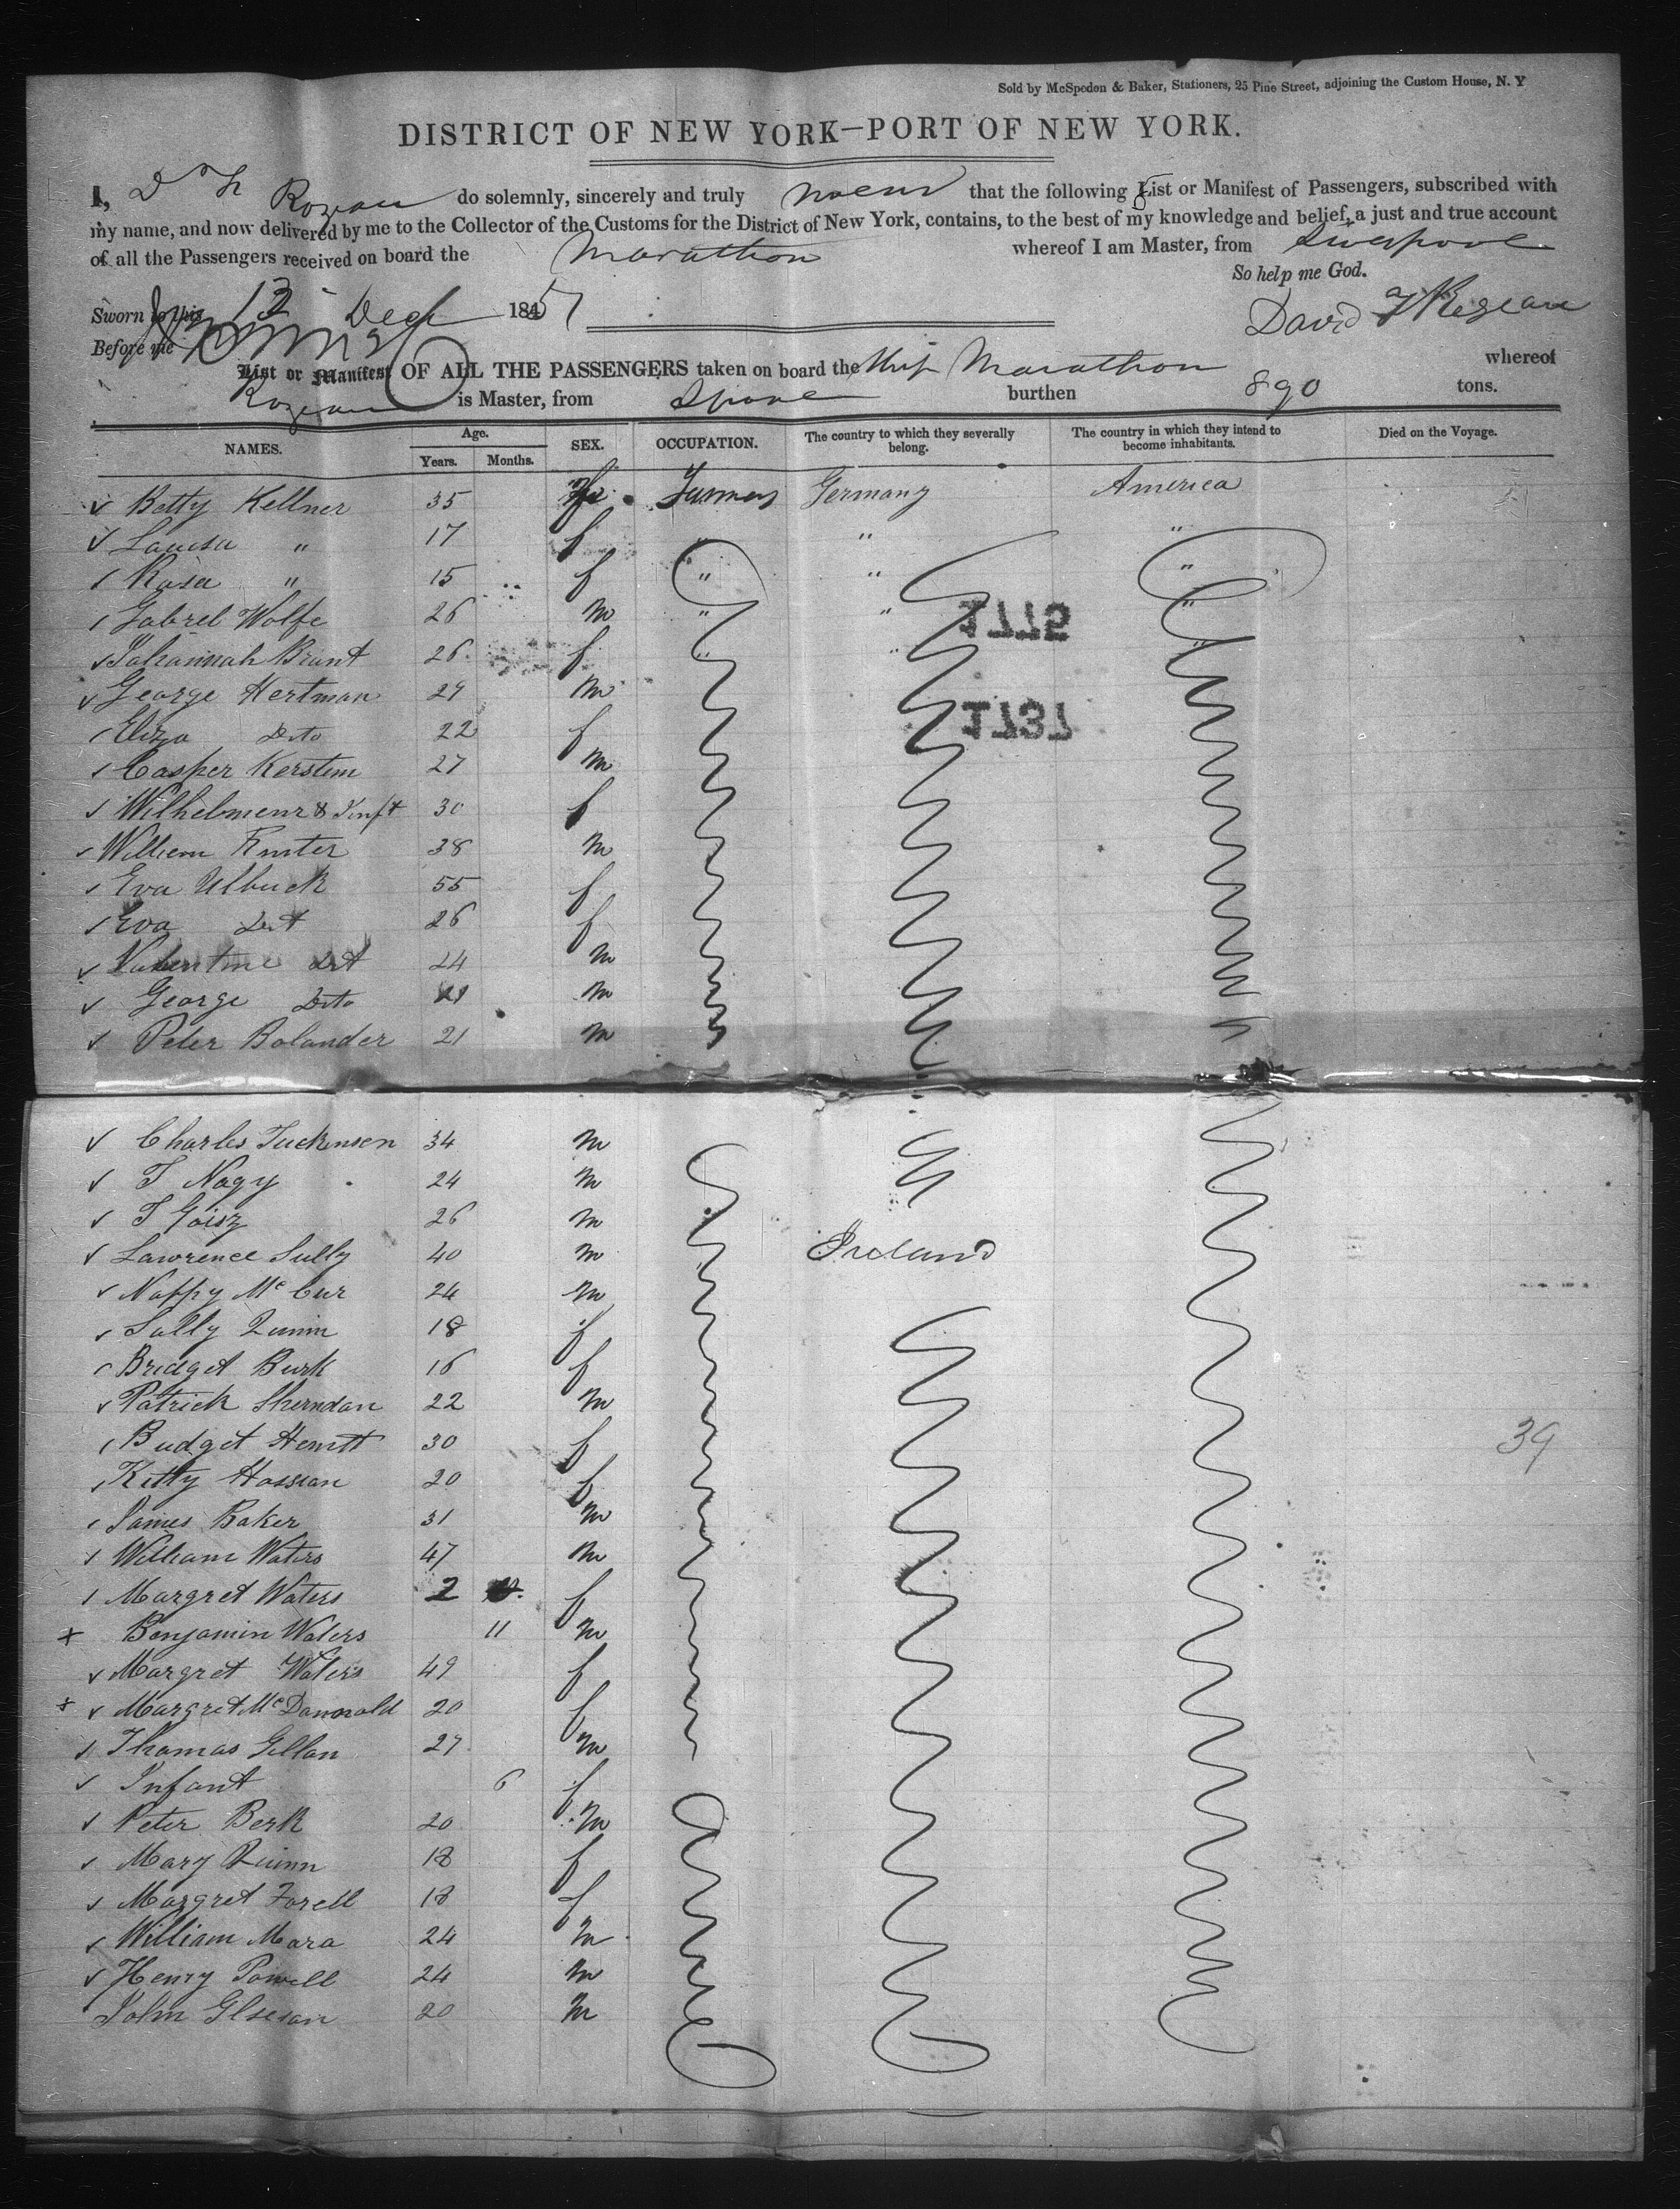 Sold by McSpedon & Baker, Stationers, 25 Pine Street, adjoining the Custom House, N. Y
DISTRICT OF NEW YORK—PORT OF NEW YORK.
I, D do solemnly, sincerely and truly that the following List or Manifest of Passengers, subscribed with
my name, and now delivered by me to the Collector of the Customs for the District of New York, contains, to the best of my knowledge and belief, a just and true account
of all the Passengers received on board the Marathon whereof I am Master, from Liverpool
So help me God.
Sworn to this 13 Dec 1851
David
Before me
List or Manifest OF ALL THE PASSENGERS taken on board the Ship Marathon whereof
is Master, from Lpool burthen 890 tons.
NAMES. Age. Years. Months. SEX. OCCUPATION. The country to which they severally belong. The country in which they intend to become inhabitants. Died on the Voyage.
Betty Kellner 35 f Farmers Germany America
Louisa " 17 f " " "
Rosa " 15 f " " "
Gabrel Wolfe 26 m " " "
1775
Johannah Brant 26 f " " "
George Hertman 29 m
1737
Eliza Dito 22 f
Casper Kerstem 27 m
Wilhelmenr & Inft 30 f
William Kuster 38 m
Eva Ulbuck 55 f
Eva Dit 26 f
Valentine Dit 24 m
George Dito m
Peter Bolander 21 m
Charles Tuckensen 34 m
T Nagy 24 m
T Goisz 26 m
Lawrence Sully 40 m Ireland
Nappy Mc Cur 24 m
Sally Quinn 18 f
Bridget Burk 16 f
Patrick Sherndan 22 m
Budget Hewitt 30 f
39
Kitty Hossian 20 f
James Baker 31 m
William Waters 47 m
Margret Waters 2 f
Benjamin Waters 11 m
Margret Waters 49 f
Margret McDannald 20 f
Thomas Gillan 27 m
Infant 6 f
Peter Berk 20 m
Mary Quinn 18 f
Margret Farell 18 f
William Mara 24 m
Henry Powell 24 m
John Glseson 20 m